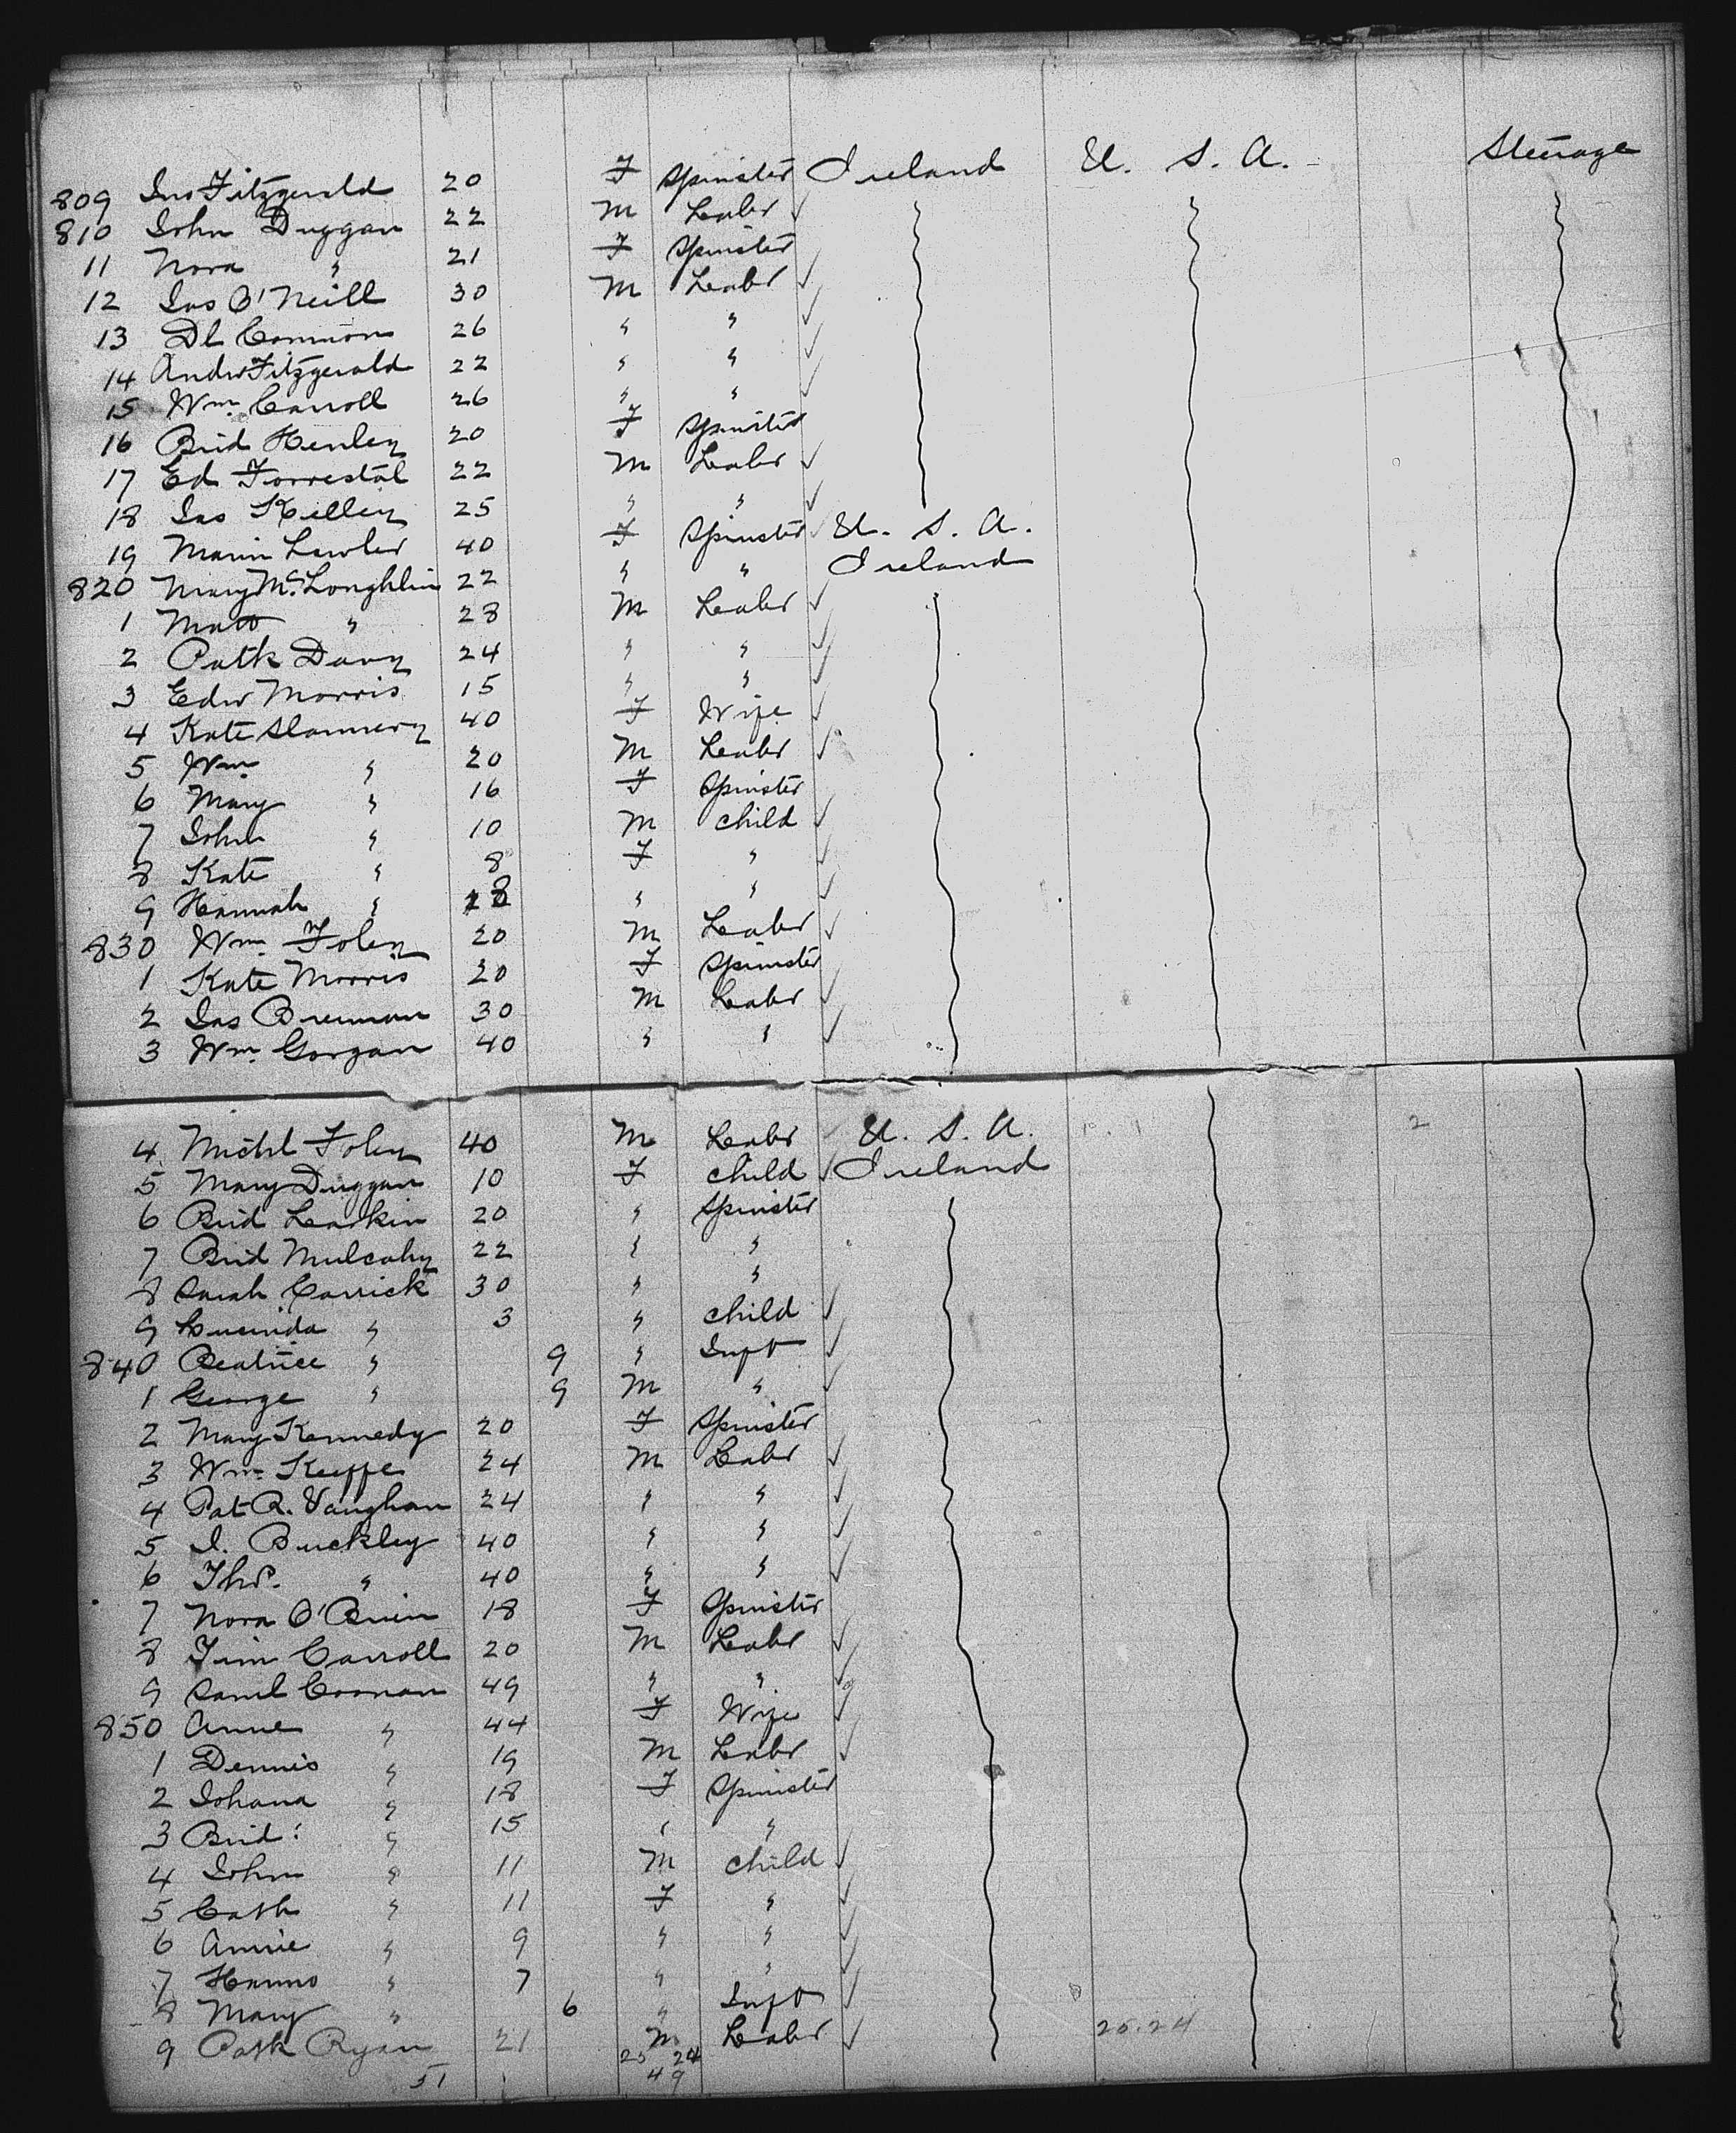 809 Jno Fitzgerald 20 F Spinster Ireland U. S. A. Steerage
810 John Duggan 22 M Labr ✓
11 Nora " 21 F Spinster
12 Jas O'Neill 30 M Labr ✓
13 Dl Connors 26 " " ✓
14 Andw Fitzgerald 22 " " ✓
15 Wm Carroll 26 " " ✓
16 Brid Henley 20 F Spinster
17 Ed Forrestal 22 M Labr ✓
18 Jas Kelley 25 " " ✓
19 Lawler 40 F Spinster ✓ U. S. A.
820 Mary McLoughlin 22 " " Ireland
1 Matt " 28 M Labr ✓
2 Patk Davy 24 " " ✓
3 Edw Morris 15 " " ✓
4 Kate Slamery 40 F Wife ✓
5 Wm " 20 M Labr ✓
6 Mary " 16 F Spinster
7 John " 10 M Child ✓
8 Kate " 8 F " ✓
9 Hannah " " " ✓
830 Wm Foley 20 M Labr ✓
1 Kate Morris 20 F Spinster
2 Jas Brennan 30 M Labr ✓
3 Wm Gorgan 40 " " ✓
4 Michl Foley 40 M Labr ✓ U. S. A. 2
5 Mary Duggan 10 F Child ✓ Ireland
6 Brid Larkin 20 " Spinster
7 Brid Mulcahy 22 " "
8 Sarah Carrick 30 " "
9 Lucinda " 3 " Child ✓
840 Beatrice " 9 " Inft ✓
1 George " 9 M " ✓
2 Mary Kennedy 20 F Spinster
3 Wm Keeffe 24 M Labr ✓
4 Pat R. Vaughan 24 " " ✓
5 J. Buckley 40 " " ✓
6 Thos. " 40 " " ✓
7 Nora O'Brien 18 F Spinster
8 Tim Carroll 20 M Labr ✓
9 Saml Coonan 49 " " ✓
850 Anne " 44 F Wife ✓
1 Dennis " 19 M Labr ✓
2 Johana " 18 F Spinster
3 Brid: " 15 " "
4 John " 11 M Child ✓
5 Cath " 11 F " ✓
6 Annie " 9 " " ✓
7 Hanno " 7 " " ✓
8 Mary " 6 " Inft ✓
9 Patk Ryan 21 M Labr ✓ 25.24
25 24
51 49